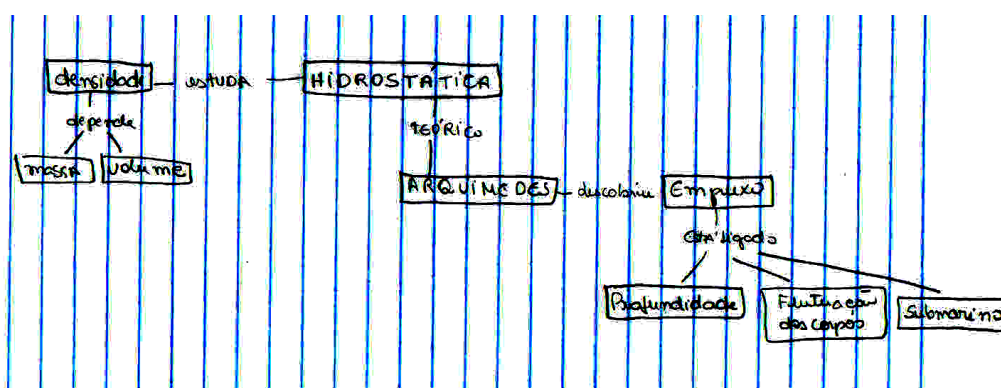 densidade estuda HIDROSTÁTICA
depende
TEÓRICO
massa volume
ARQUIMEDES descobriu Empuxo
Está ligado
Profundidade Flutuação
dos corpos
Submarino